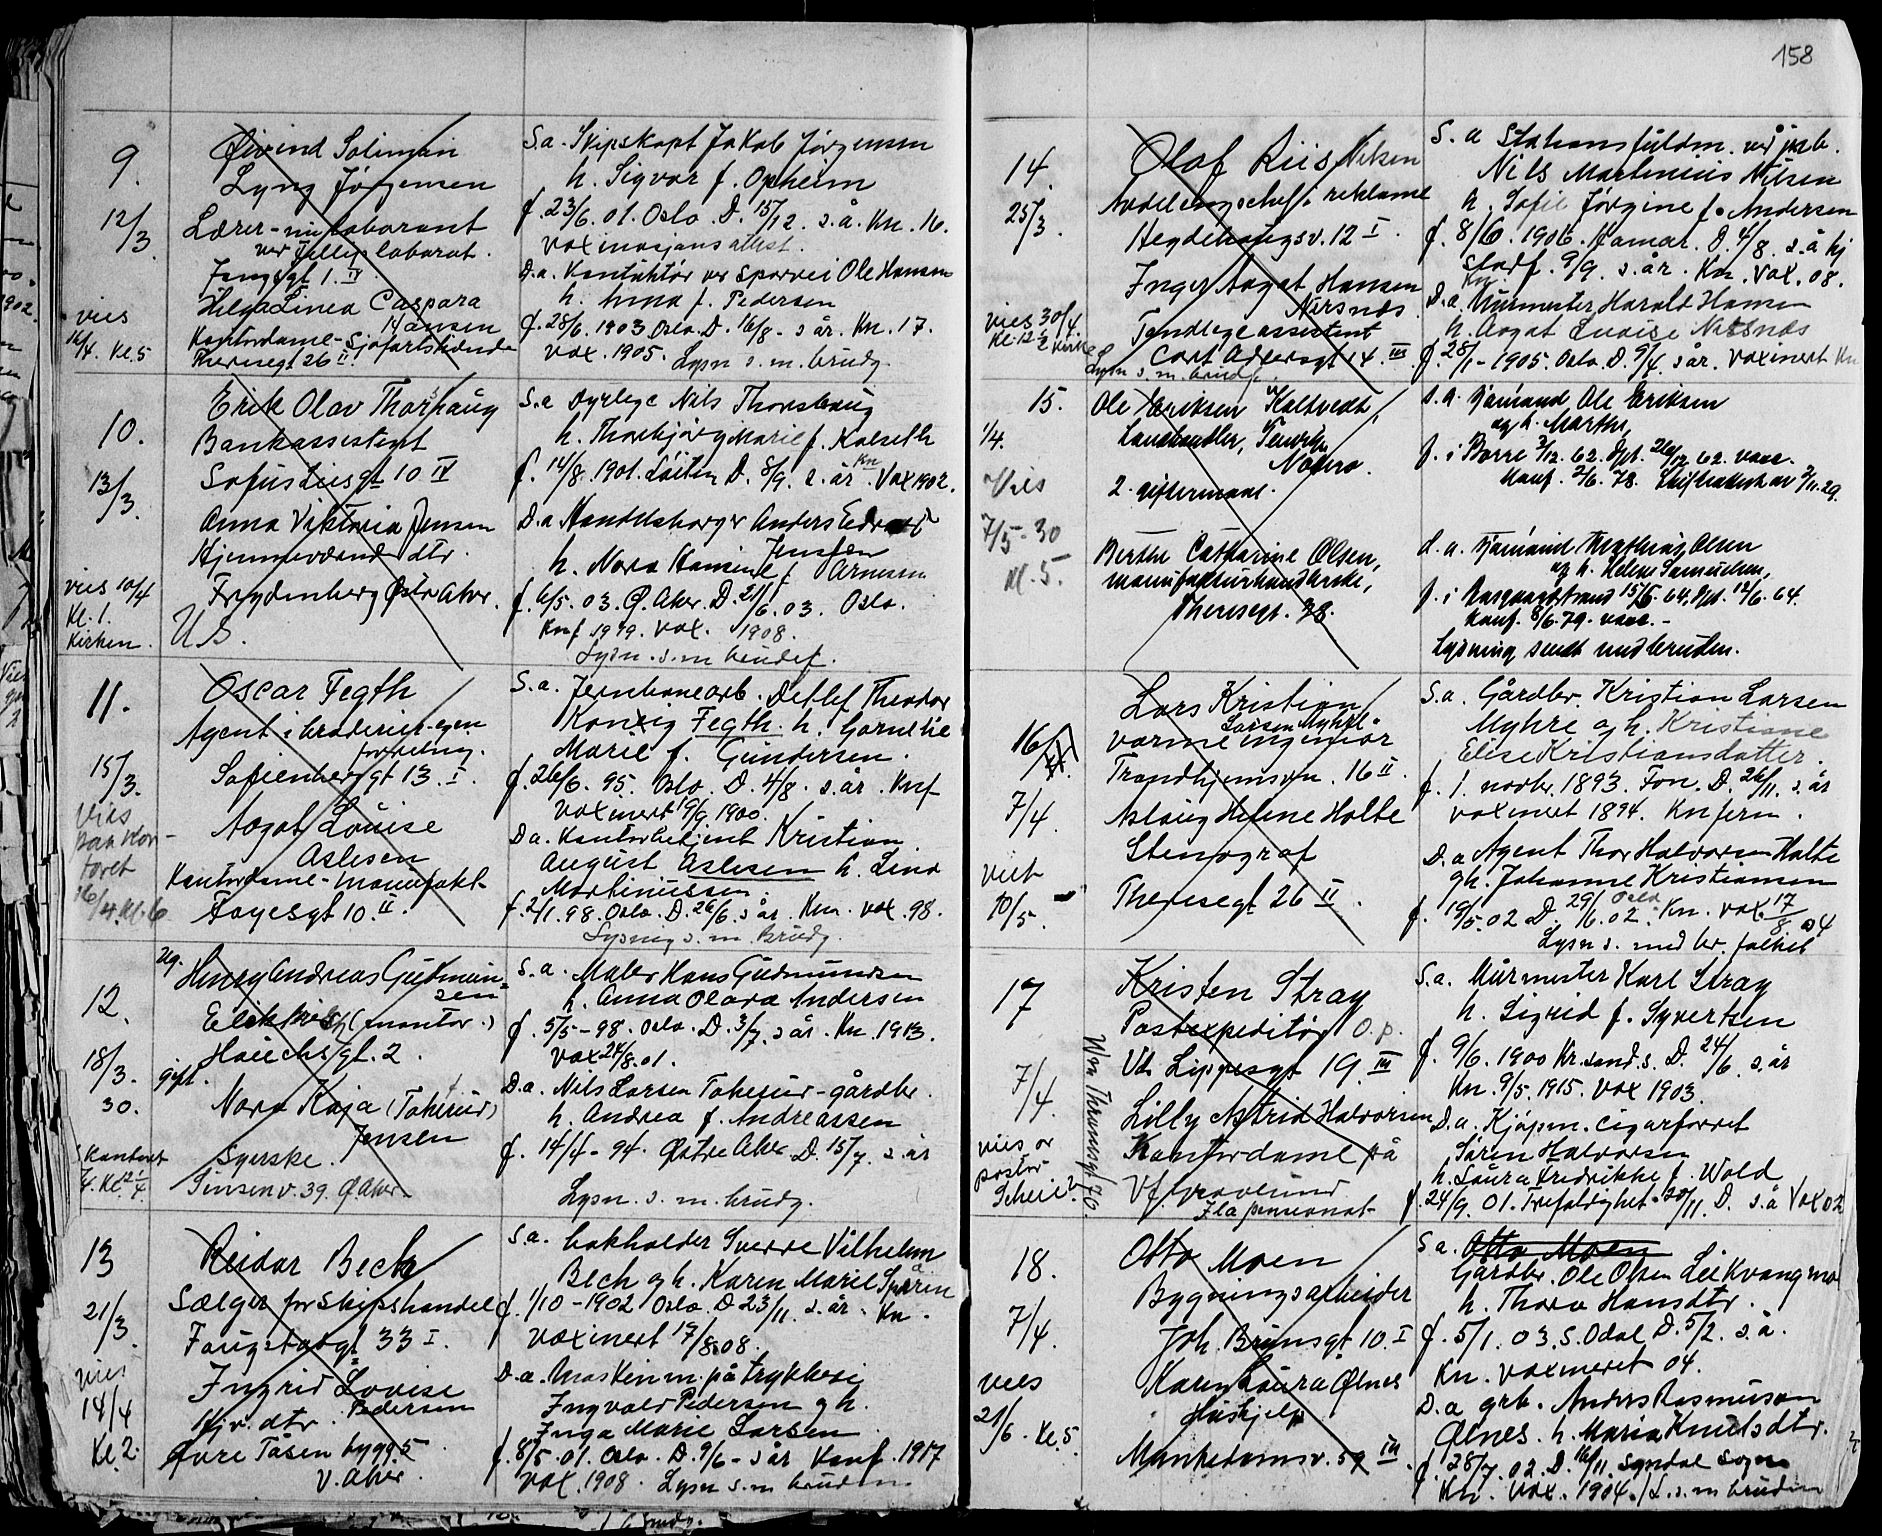 158
9.
12/3
vies
16/4. Kl. 5
Øivind Soliman
Lyng Jørgensen
Lærer - nu laborant
ver Jellys laborat.
Jensgt 1. IV
Helga Linea Caspara
Hansen
Kontordame - Sjøfartstidende
Theresegt 26 II.
S.a. Skipskapt Jakob Jørgensen
h. Sigvor f. Opheim
f. 23/6. 01. Oslo. D. 15/12. s.å. Kn. 16.
Vaxinasjonsattest.
D.a. Konduktør ver Sporvei Ole Hansen
h. Anna f. Pedersen
f. 28/6. 1903 Oslo. D. 16/8. s år. Kn. 17.
Vax. 1905. Lysn s. m. brudg.
10.
13/3.
vies 10/4
Kl. 1.
Kirken.
Erik Olav Thorhaug
Bankassistent
Sofus Liesgt 10 IV
Anna Viktoria Jensen
Hjemmeværende dtr.
Frydenberg Østre Aker.
U.S.
S.a Dyrlege Nils Thorshaug
h. Thorbjørg Marie f. Kolseth
f. 14/8. 1901. Løiten D. 8/9. s. år. Kn Vax 1902.
D.a Handelsborger Anders Edvard
Jensen
h. Nora Hansine f. Arnesen
f. 6/5. 03. Ø. Aker. D. 21/6. 03. Oslo.
Knf 1919. Vax. 1908.
Lysn. s. m brudef.
11.
15/3.
Vies
paa Kon-
toret
16/4. Kl. 6
Oscar Fegth
Agent i broderier - egen
forretning.
Sofienberggt 13. I.
Aagot Louise
Aslesen
Kontordame - manufakt.
Fayesgt 10. II.
S.a. Jernbanearb. Detlef Theodor
Konrig Fegth. h. Cornelie
Marie f. Gundersen.
f. 26/6. 95. Oslo. D. 4/8. s. år. Knf
Vaxinert 19/9 1900.
D a. Kontorbetjent Kristian
August Aslesen h. Lina
Martinussen.
f. 2/1. 98. Oslo. D. 26/6. s år. Kn. Vax. 98.
Lysning s. m. Brudg.
12.
18/3.
30.
Kontoret
Ug.
Henry Andreas Gudmun-
sen
Elektriker (montør.)
Hauchsgt. 2.
gift.
Nora Kaja (Tokerud)
Jensen
Syerske.
Sinsenv. 39. Ø Aker.
S. a. Maler Hans Gudmundsen
h. Anna Olava Andersen
f. 5/5 - 98. Oslo. D. 3/7. s år. Kn. 1913.
Vax 24/8. 01.
D.a. Nils Larsen Tokerud - gårdbr.
h. Andrea f. Andreassen
f. 14/4 - 94. Østre Aker D. 15/7. s. år
Lysn. s. m. brudg.
13
21/3.
vies
14/4
Kl. 2.
Reidar Bech
Sælger for Skipshandel
Fougstadgt 33 I.
Ingrid Lovise
Pedersen
Hjv. dtr.
Øvre Tåsen bygg 5
V. Aker.
S.a. bokholder Sverre Vilhelm
Bech og h. Karen Marie
f. 1/10 - 1902 Oslo. D. 23/11. s. år. Kn.
Vaxinert 17/8. 08.
D.a. Maskinm. på trykkeri
Ingvald Pedersen og h.
Inga Marie Larsen
f. 8/5. 01. Oslo. D. 9/6 - s år Konf. 1917
Vax. 1908. Lysn s. m bruden
14.
25/3.
vies 30/4.
Kl. 12 1/2 Kirke
Olaf Riis Nilsen
Avdelingschef i reklame
Hegdehaugsv. 12 I.
Inger Aagot Hansen
Nersnæs
Tandlegeassistent
Cort Adelersgt 14. III
Lysn s. m. brudg.
S. a Stationsfuldm. ved jnb.
Nils Martinius Nilsen
h. Sofie Jørgine f. Andersen
f. 8/6. 1906. Hamar. D. 4/8. s. å hj
stadf. 9/9. s. år. Kn. Vax. 08.
D.a. Murmester Harald Hansen
h. Aagot Louise Nersnæs
f. 28/1 - 1905. Oslo. D. 9/4. s år. Vaxinert Kn
15.
1/4.
Vies
7/5 - 30
Kl. 5.
Ole Eriksen Holtvedt,
Landhandler,
Nøtterø.
2. giftermaal.
Berthe Catharine Olsen,
manufakturhandlerske,
Theresegt. 38.
s. a. Gaardmand Ole Eriksen
og h. Marthe,
f. i Borre 3/12. 62. Dpt. 26/12 62. vacc.
Konf. 2/6. 78. Skifteattest av 2/11. 29.
d. a. Gaardmand Mathias Olsen
og h. Helene Samuelsen,
f. i Aasgaardstrand 15/5. 64, dpt. 12/6. 64.
Konf. 8/6. 79. vacc. -
Lysning sendt med bruden.
16/
7/4.
viet
10/5.
Lars Kristian
Larsen Myhre
varmeingeniør
Trondhjemsvn. 16 II.
Aslaug Helene Holte
Stenograf
Theresegt 26 II.
S. a. Gårdbr. Kristian Larsen
Myhre og h. Kristiane
Elise Kristiansdatter.
f. 1. novbr. 1893. Fon. D. 26/11. s. år
vaxinert 1894. Knferm.
D.a Agent Thor Halvorsen Holte
og h. Johanne Kristiansen
f. 19/5. 02 D. 29/6. 02. Oslo. Kn. Vax 17/8 04
Lysn s. med br. folket
17
7/4.
vies av
pastor
Kristen Stray
Postexpeditør O.p.
Vb. Lippesgt 19. III
Lilly Astrid Halvorsen
Kontordame på
Vf. Gravlund
Ila pensionat
Wm Thranesgt 70.
S.a. Murmester Karl Stray
h. Sigrid f. Syvertsen
f. 9/6. 1900 Kr.sand. s. D. 24/6. s. år
Kn. 9/5. 1915. Vax 1903.
D.a. Kjøpm. cigarforret
Søren Halvorsen
h. Laura Fredrikke f. Wold
f. 24/9. 01. Trefoldighet. 20/11. D. s. å Vax 02
18.
7/4.
vies
21/6. Kl. 5
Otto Moen
Bygningsarbeider
Joh. Brunsgt. 10. I
Karen Laura Ølnes
Hushjelp
Munkedamsv. 59 III.
S a. Otto Moen
Gårdbr. Ole Olsen Lei Kvangmo
h. Thora Hansdtr.
f. 5/1. 03. S. Odal D. 5/2. s. å.
Kn. Vaxineret 04.
D.a grb. Anders Rasmussen
Ølnes. h. Maria Knudsdtr.
f. 28/7. 02. D. 16/11. Syndal Sogn
Kn. Vax. 1904. / L. s. m bruden